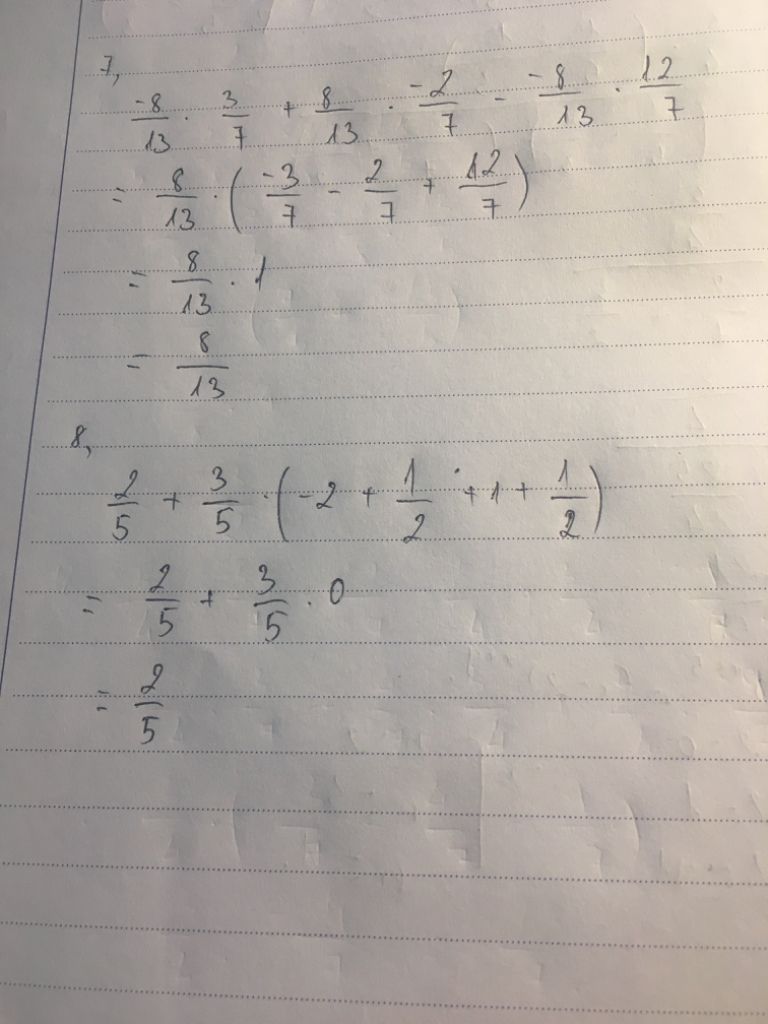 7,
-8/13 · 3/7 + 8/13 · -2/7 - -8/13 · 12/7
= 8/13 · ( -3/7 - 2/7 + 12/7 )
= 8/13 · 1
= 8/13
8,
2/5 + 3/5 · ( -2 + 1/2 + 1 + 1/2 )
= 2/5 + 3/5 · 0
= 2/5